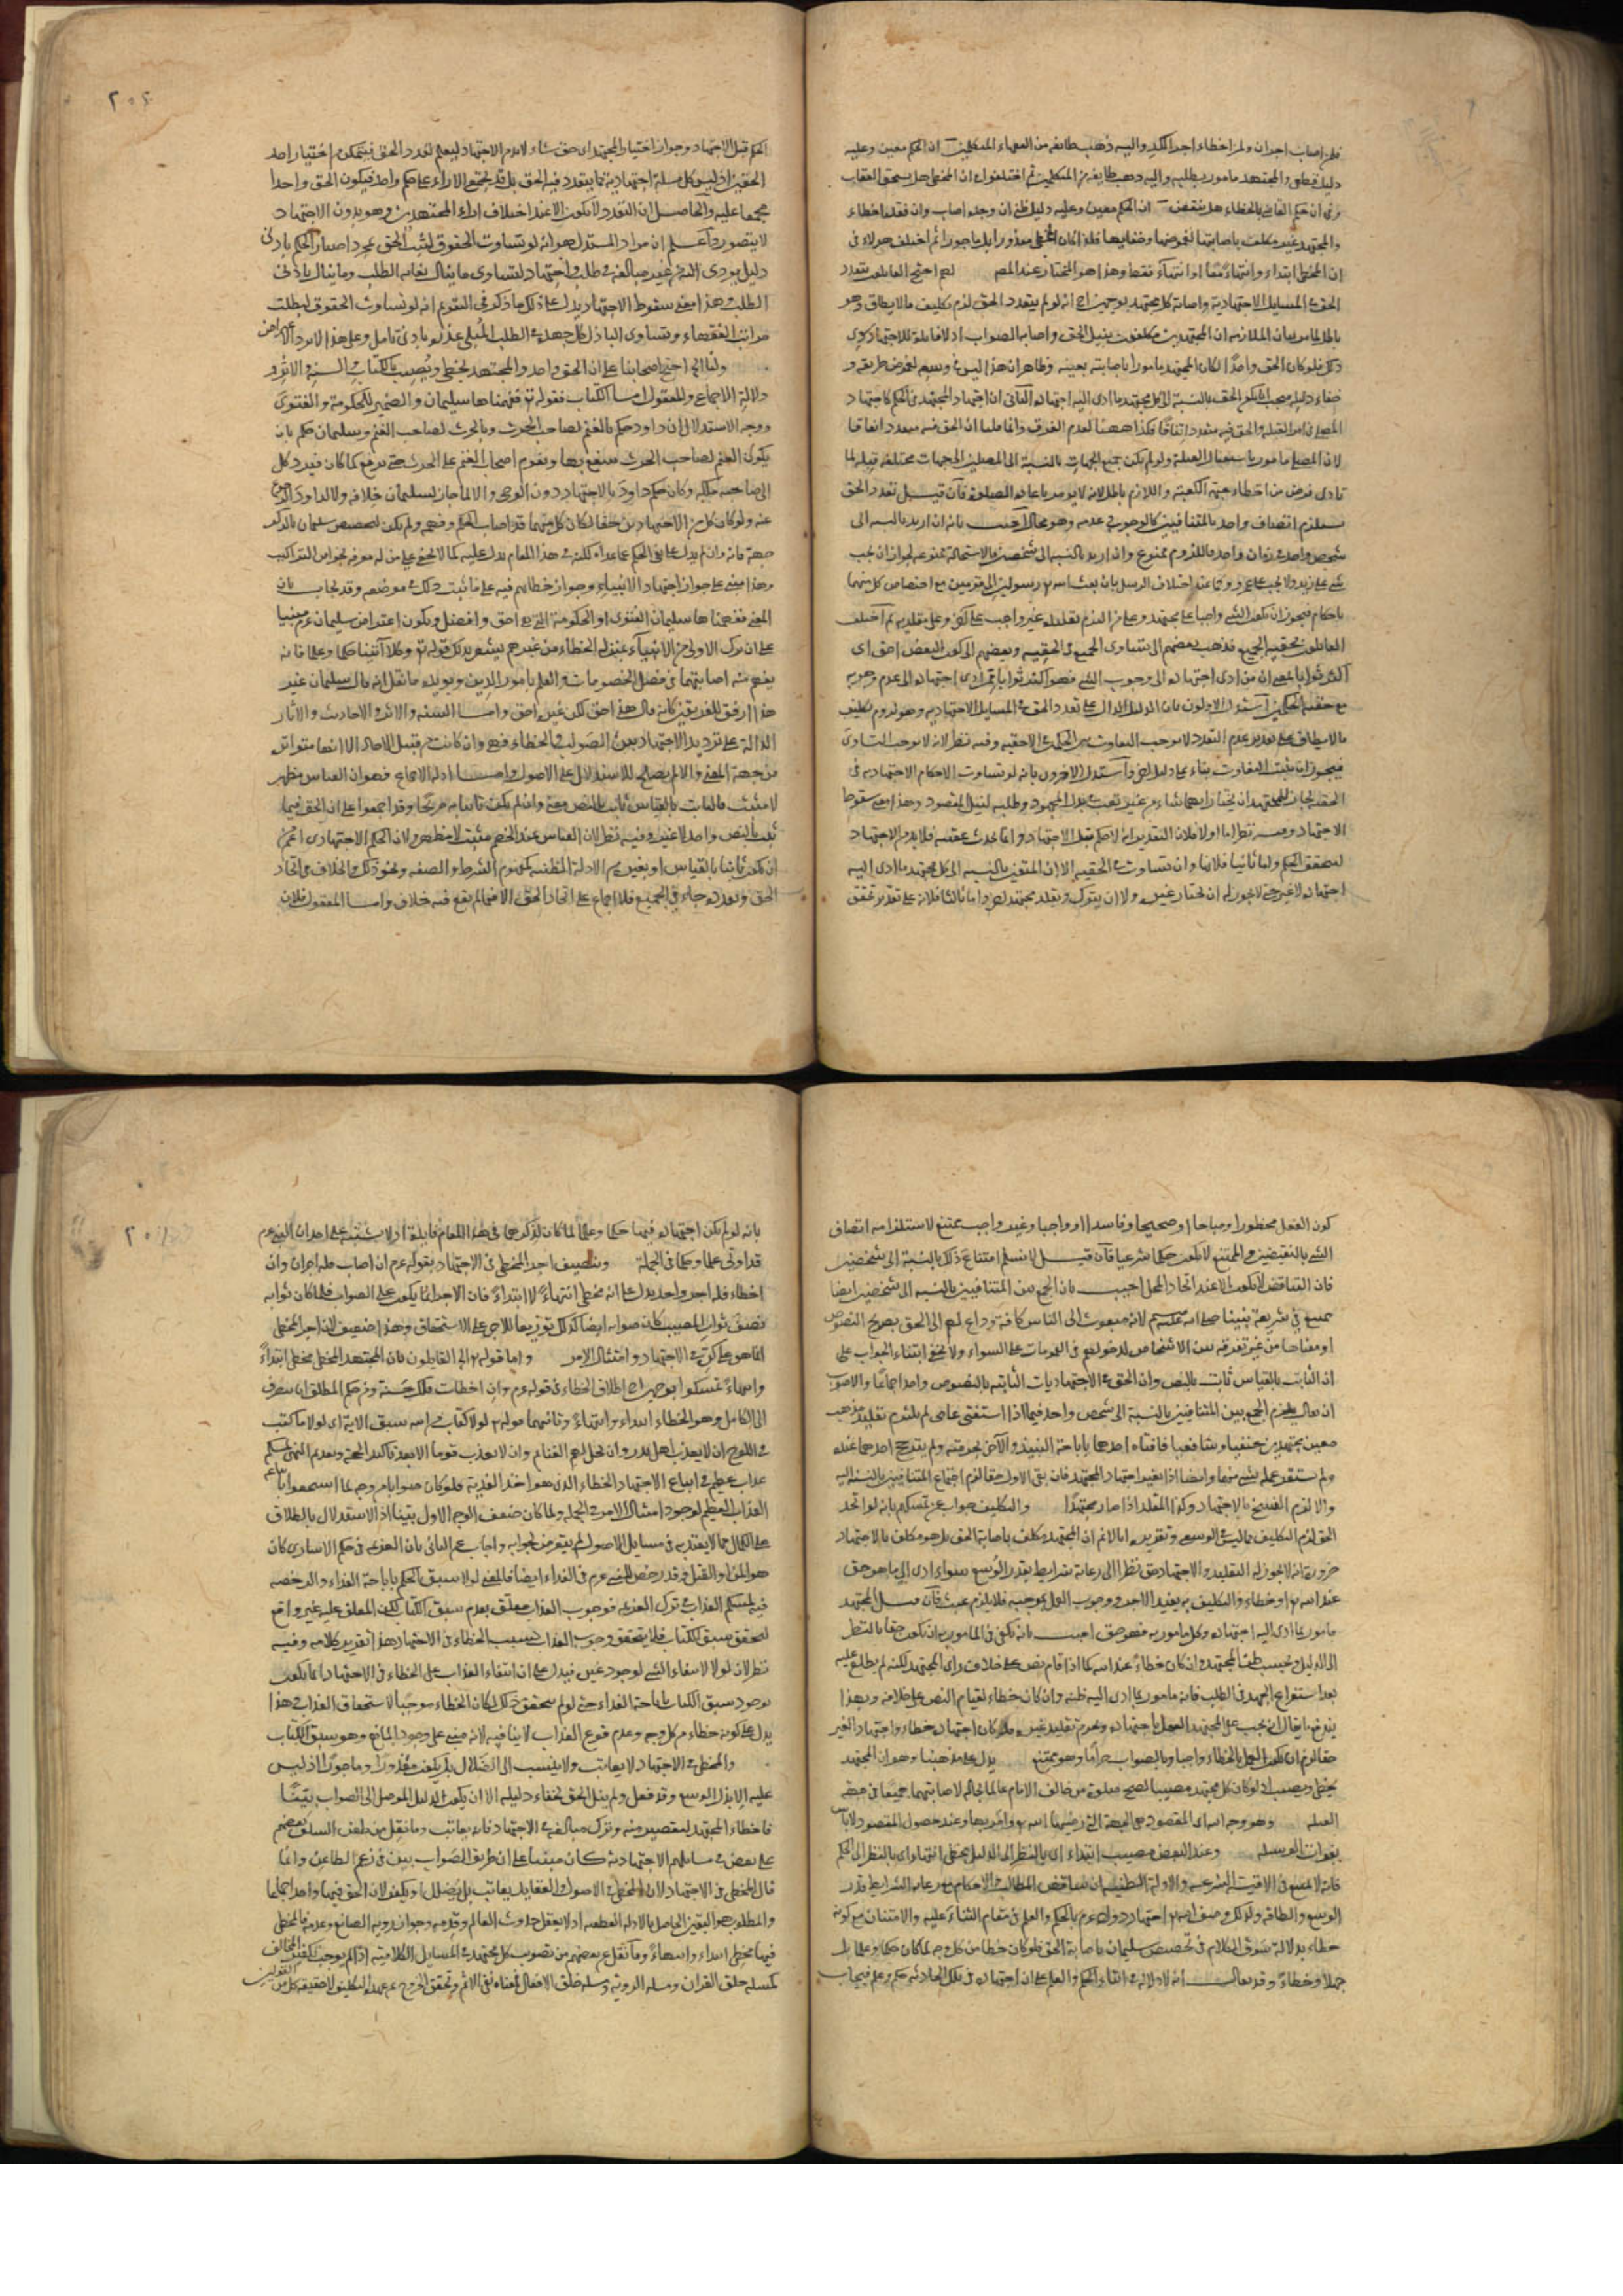 فله اصاب اجران ولمن اخطاء اجر الكد واليه ذهب طائفه من الفقهاء والمتكلمين ان الحكم معين وعليه
دليل قطعي والمجتهد مامور بطلبه واليه ذهب طايفه من المتكلمين ثم اختلفوا في ان المخطي هل يستحق العقاب
وفي ان حكم القاضي بالخطاء هل ينقض ان الحكم معين وعليه دليل ظني ان وجده اصاب وان فقده اخطاء
والمجتهد غير مكلف باصابتها لغموضها وخفايها فلذا كان المخطي معذورا بل ماجورا ثم اختلف هولاء في
ان المخطي ابتداء وانتهاء معا او انتهاء فقط وهذا هو المختار عند المص احتج القائلون بتعدد
الحق في المسايل الاجتهادية واصابة كل مجتهد بوجهين انه لو لم يتعدد الحق لزم تكليف ما لايطاق وهو
باطل لما مر بيان الملازمه ان المجتهدين مكلفون بنيل الحق واصابه الصواب اذ لا فائدة للاجتهاد سوى
ذلك فلو كان الحق واحدا لكان المجتهد مامورا باصابته بعينه وظاهر ان هذا ليس في وسعه لغموض طريقه و
خفاء دليله فيجب ان يكون الحق بالنسبة الى كل مجتهد ما ادى اليه اجتهاده الثاني ان اجتهاد المجتهد في الحكم كاجتهاد
المصلي في امر القبلة والحق فيه متعدد اتفاقا فكذا ههنا لعدم الفرق وانما قلنا ان الحق فيه متعدد اتفاقا
لان المصلي مامور باستقبال القبلة ولو لم يكن جميع الجهات بالنسبة الى المصلين الى جهات مختلفة قبلة لما
تادى فرض من اخطاء جهة الكعبة واللازم باطل لانه لا يومر باعادة الصلوة فان قيل تعدد الحق
يستلزم اتصاف واحد بالمتنافيين كالوجوب وعدمه وهو محال اجيب بانه ان اريد بالنسبه الى
شخص واحد في زمان واحد فاللزوم ممنوع وان اريد بالنسبة الى شخصين فالاستحالة ممنوعه لجواز ان يجب
شي على زيد ولا يجب على عمرو كما عند اختلاف الرسل بان بعث الله تعالى رسولين الى قومين مع اختصاص كل منهما
باحكام فيجوز ان يكون الشي واجبا على مجتهد وعلى من التزم تقليده غير واجب على اخر وعلى مقلديه ثم اختلف
القائلون بحقية الجميع فذهب بعضهم الى تساوي الجميع في الحقية وبعضهم الى كون البعض احق اى
اكثر ثوابا بمعنى ان من ادى اجتهاده الى وجوب الشي فهو اكثر ثوابا ممن ادى اجتهاده الى عدم وجوبه
مع حقية الحكمين استدل الاولون بان الدليل الدال على تعدد الحق في المسايل الاجتهادية وهو لزوم تكليف
ما لا يطاق على تقدير عدم التعدد لا يوجب التفاوت بين الحكمين في الاحقيه وفيه نظر لانه لا يوجب التساوي
فيجوز ان يثبت التفاوت بناء على دليل اخر واستدل الاخرون بانه لو تساوت الاحكام الاجتهاديه في
الحقيه لجاز للمجتهد ان يختار ايهما شاء من غير تعب في بذل المجهود وطلبه لنيل المقصود وهذا معنى سقوط
الاجتهاد وفيه نظر اما اولا فلان التقدير انه لا حكم قبل الاجتهاد وانما يحدث عقيبه فلا بد من الاجتهاد
ليتحقق الحكم واما ثانيا فلانها وان تساوت في الحقيه الا ان المتعين بالنسبه الى كل مجتهد ما ادى اليه
اجتهاده لا غير حتى لا يجوز له ان يختار غيره ولا ان يترك ويقلد مجتهدا اخر واما ثالثا فلانه على تقدير تحقق
٢٠٤
الحكم قبل الاجتهاد وجواز اختيار المجتهد اى حق شاء لا بد من الاجتهاد ليعلم تعدد الحق فيتمكن من اختيار احد
الحقين اذ ليس كل مسئلة اجتهادية مما يتعدد فيه الحق بل قد يجتمع الاراء على حكم واحد فيكون الحق واحدا
مجمعا عليه والحاصل ان التعدد لا يكون الا عند اختلاف اراء المجتهدين وهو بدون الاجتهاد
لا يتصور واعلم ان مراد المستدل هو انه لو تساوت الحقوق لثبت الحق بمجرد اصابة الحكم بادنى
دليل يودى اليه من غير مبالغة في طلب واجتهاد لتساوى ما ينال بغاية الطلب وما ينال بادنى
الطلب وهذا معنى سقوط الاجتهاد يدل على ذلك ما ذكر في التقويم انه لو تساوت الحقوق لبطلت
مراتب الفقهاء وتساوى الباذل كل جهده في الطلب المبلي عذره بادنى تامل وعلى هذا لا يرد الاعتراض
ولنا اى احتج اصحابنا على ان الحق واحد والمجتهد يخطي ويصيب بالكتاب والسنه والاثر و
دلالة الاجماع والمعقول اما الكتاب فقوله تع ففهمناها سليمان والضمير للحكومة والفتوى
ووجه الاستدلال ان داود حكم بالغنم لصاحب الحرث وبالحرث لصاحب الغنم وسليمان حكم بان
يكون الغنم لصاحب الحرث ينتفع بها ويقوم اصحاب الغنم على الحرث حتى يرجع كما كان فيرد كل
الى صاحبه ملكه وكان حكم داود بالاجتهاد دون الوحى والا لما جاز لسليمان خلافه ولا لداود الرجوع
عنه ولو كان كل من الاجتهادين حقا لكان كل منهما قد اصاب الحكم وفهمه ولم يكن لتخصيص سليمان بالذكر
جهة فانه وان لم يدل على نفي الحكم عما عداه لكنه في هذا المقام يدل عليه كما لا يخفى على من له معرفه بخواص التراكيب
وهذا مبني على جواز اجتهاد الانبياء وجواز خطايهم فيه على ما ثبت ذلك في موضعه وقد يجاب بان
المعنى ففهمنا سليمان الفتوى او الحكومة التي هي احق وافضل ويكون اعتراض سليمان عم مبنيا
على ان ترك الاولى من الانبياء بمنزلة الخطاء من غيرهم يشعر بذلك قوله تع وكلا اتينا حكما وعلما فانه
يفهم منه اصابتهما في فصل الخصومات والعلم بامور الدين ويويده ما نقل انه قال سليمان غير
هذا ارفق للفريقين كانه قال هذا حق لكن غيره احق واما السنه والاثر فالاحاديث والاثار
الدالة على ترديد الاجتهاد بين الصواب والخطاء فهي وان كانت من قبيل الاحاد الا انها متواترة
من جهة المعنى والا لم يصلح للاستدلال على الاصول واما دلالة الاجماع فهو ان القياس مظهر
لا مثبت فالثابت بالقياس ثابت بالنص معنى وان لم يكن ثابتا به صريحا وقد اجمعوا على ان الحق فيما
ثبت بالنص واحد لا غير وفيه نظر لان القياس عند الخصم مثبت لا مظهر ولان الحكم الاجتهادى اعم من
ان يكون ثابتا بالقياس او بغيره من الادلة الظنيه كمفهوم الشرط والصفه ونحو ذلك والخلاف في اتحاد
الحق وتعدده جاء في الجميع فلا اجماع على اتحاد الحق الا فيما لم يقع فيه خلاف واما المعقول فلان
كون الفعل محظورا ومباحا او صحيحا وفاسدا او واجبا وغير واجب ممتنع لاستلزامه اتصاف
الشي بالنقيضين والممتنع لا يكون حكما شرعيا فان قيل لا نسلم امتناع ذلك بالنسبة الى شخصين
فان التناقض لا يكون الا عند اتحاد المحل اجيب بان الجمع بين المتنافيين بالنسبه الى شخصين ايضا
ممتنع في شريعة نبينا صلى الله عليه وسلم لانه مبعوث الى الناس كافة وداع لهم الى الحق بصريح النصوص
او معناها من غير تفرقه بين الاشخاص لدخولهم في العمومات على السواء ولا يخفى ابتناء الجواب على
ان الثابت بالقياس ثابت بالنص وان الحق في الاجتهاديات الثابته بالنصوص واحد اجماعا والاصوب
ان يقال يلزم الجمع بين المتنافيين بالنسبة الى شخص واحد فيما اذا استفتى عامى لم يلتزم تقليد مذهب
معين مجتهدين حنفيا وشافعيا فافتاه احدهما باباحة النبيذ والاخر بحرمته ولم يترجح احدهما عنده
ولم يستقر عمله بشي منهما وايضا اذا تغير اجتهاد المجتهد فان بقى الاول حقا لزم اجتماع المتنافيين بالنسبة اليه
والا لزم النسخ بالاجتهاد وكذا المقلد اذا صار مجتهدا والتكليف جواب عن تمسكهم بانه لو اتحد
الحق لزم التكليف بما ليس في الوسع وتقريره انا لانم ان المجتهد مكلف باصابة الحق بل هو مكلف بالاجتهاد
ضرورة انه لا يجوز له التقليد والاجتهاد حق نظرا الى رعاية شرايط بقدر الوسع سواء ادى الى ما هو حق
عند الله تع او خطاء والتكليف به يفيد الاجر ووجوب العمل بموجبه فلا يلزم عبث فان قيل المجتهد
مامور بما ادى اليه اجتهاده وكل مامور به فهو حق اجيب بانه يكفي في المامور به ان يكون حقا بالنظر
الى الدليل وبحسب ظن المجتهد وان كان خطاء عند الله كما اذا قام نص على خلاف راى المجتهد لكنه لم يطلع عليه
بعد استفراغ الجهد في الطلب فانه مامور بما ادى اليه ظنه وان كان خطاء لقيام النص على خلافه وبهذا
يندفع ما يقال انه يجب على المجتهد العمل باجتهاده ويحرم تقليد غيره فلو كان اجتهاده خطاء واجتهاد الغير
حقا لزم ان يكون العمل بالخطاء واجبا وبالصواب حراما وهو ممتنع يدل على مذهبنا وهو ان المجتهد
يخطي ويصيب اذ لو كان كل مجتهد مصيبا لصح صلوة من خالف الامام عالما بحاله لاصابتهما جميعا في جهة
القبلة وهو وجه الله اى المقصود هي الجهة التي رضيها الله تع وامر بها وعند حصول المقصود لا باس
بفوات الوسيلة وعند البعض مصيب ابتداء اى بالنظر الى الدليل مخطي انتهاء اى بالنظر الى الحكم
فانه لا يمتنع في الاقيسة الشرعيه والادلة الظنيه ان تتناقض المطالب والاحكام مع رعاية الشرايط بقدر
الوسع والطاقه ولذلك وصف الله تع اجتهاد داود عم بالحكم والعلم في مقام الثناء عليه والامتنان مع كونه
خطاء بدلالة سوق الكلام في تخصيص سليمان باصابة الحق فلو كان خطا من كل وجه لما كان حكما وعلما بل
جهلا وخطاء وقد يقال انه لا دلالة في ايتاء الحكم والعلم على ان اجتهاده في تلك الحادثه حكم وعلم فيجاب
٢٠٥
بانه لو لم يكن اجتهاده فيها حكما وعلما لما كان لذكرهما في هذا المقام فايدة اذ لا يشتبه على احد ان النبي عم
قد اوتى علما وحكما في الجملة وتنصيف اجر المخطي في الاجتهاد بقوله عم ان اصاب فله اجران وان
اخطاء فله اجر واحد يدل على انه مخطي انتهاء لا ابتداء فان الاجر انما يكون على الصواب فلما كان ثوابه
نصف ثواب المصيب كان صوابه ايضا كذلك توزيعا للاجر على الاستحقاق وهذا ضعيف لان اجر المخطي
انما هو على كده في الاجتهاد وامتثال الامر واما قوله اى القائلون بان المجتهد المخطي مخطي ابتداء
وانتهاء تمسكوا بوجهين اطلاق الخطاء في قوله عم وان اخطات فلك حسنة ومن حكم المطلق ان ينصرف
الى الكامل وهو الخطاء ابتداء وانتهاء وثانيهما قوله تع لولا كتاب من الله سبق الاية اى لولا ما كتب
في اللوح ان لا يعذب اهل بدر وان يحل لهم الغنائم وان لا يعذب قوما الا بعد تاكيد الحجة وتقديم النهي لمسكم
عذاب عظيم في اتباع الاجتهاد الخطاء الذى هو اخذ الفدية فلو كان صوابا من وجه لما استحقوا باتباعه
العذاب العظيم لوجود امتثال الامر في الجملة ولما كان ضعف الوجه الاول بينا اذ الاستدلال بالاطلاق
على الكمال مما لا يعتد به في مسايل الاصول لم يتعرض لجوابه واجاب عن الثاني بان العزيمة في حكم الاسارى كان
هو المن او القتل وقد رخص للنبي عم في الفداء ايضا فالمعنى لولا سبق الحكم باباحة الفداء والرخصه
فيه لمسكم العذاب في ترك العزيمه فوجوب العذاب معلق بعدم سبق الكتاب لكن المعلق عليه غير واقع
لتحقق سبق الكتاب فلا يتحقق وجوب العذاب بسبب الخطاء في الاجتهاد هذا تقرير كلامه وفيه
نظر لان لولا لانتفاء الشي لوجود غيره فيدل على ان انتفاء العذاب على الخطاء في الاجتهاد انما يكون
بوجود سبق الكتاب باباحة الفداء حتى لو لم يتحقق ذلك لكان الخطاء موجبا لاستحقاق العذاب وهذا
يدل على كونه خطاء من كل وجه وعدم وقوع العذاب لا ينافيه لانه مبني على وجود المانع وهو سبق الكتاب
والمخطي في الاجتهاد لا يعاتب ولا ينسب الى الضلال بل يكون معذورا وماجورا اذ ليس
عليه الا بذل الوسع وقد فعل ولم ينل الحق لخفاء دليله الا ان يكون الدليل الموصل الى الصواب بينا
فاخطاء المجتهد لتقصير منه وترك مبالغة في الاجتهاد فانه يعاتب وما نقل من طعن السلف بعضهم
على بعض في مسايلهم الاجتهادية كان مبنيا على ان طريق الصواب بين في زعم الطاعن وانما
قال المخطي في الاجتهاد لان المخطي في الاصول والعقايد يعاتب بل يضلل او يكفر لان الحق فيها واحد اجماعا
والمطلوب هو اليقين الحاصل بالادلة القطعيه اذ لا يعقل حدوث العالم وقدمه وجواز روية الصانع وعدمه فالمخطي
فيها مخطي ابتداء وانتهاء وما نقل عن بعضهم من تصويب كل مجتهد في المسايل الكلاميه اذا لم يوجب تكفير المخالف
كمسئلة خلق القران ومسئلة الروية ومسئلة خلق الافعال فمعناه نفي الاثم وتحقق الخروج عن عهدة التكليف لا حقيقة كل من القولين